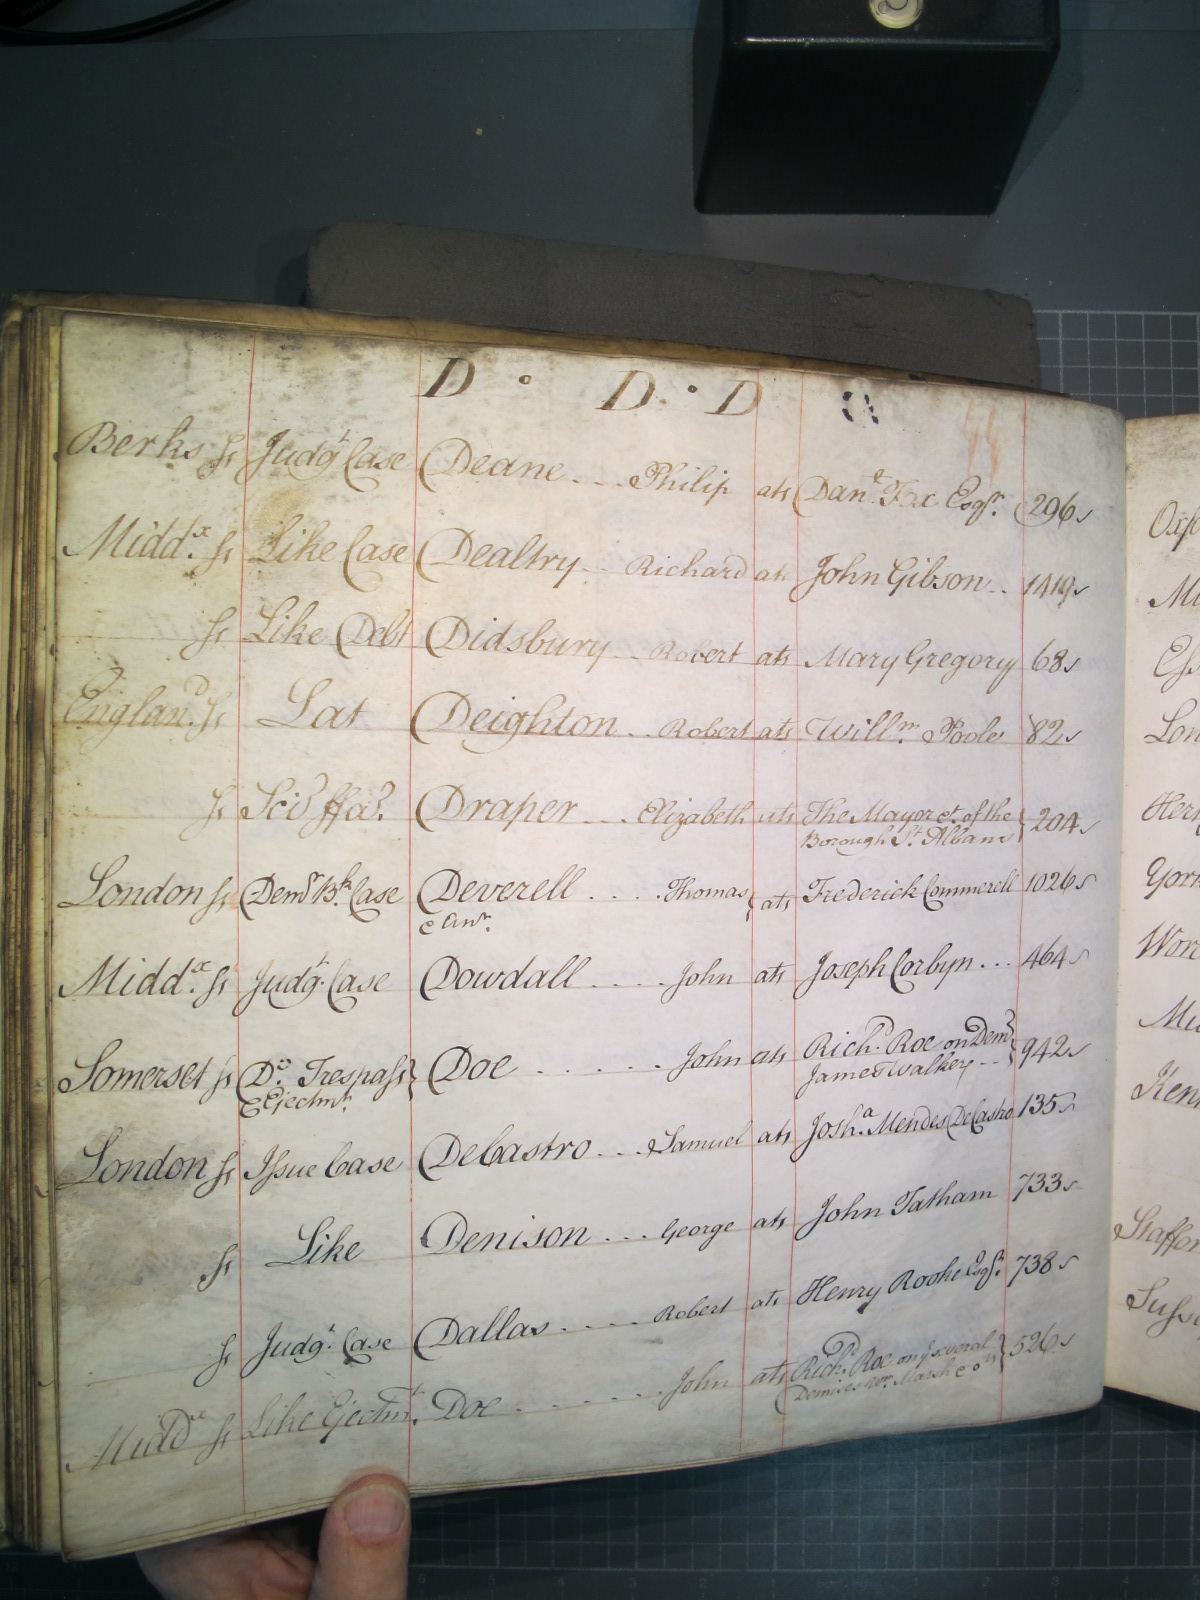 D · D · D
Berks ss Judgt Case Deane ... Philip ats Danl Esqr. 296
Middx. ss Like Case Dealtry .. Richard ats John Gibson .. 1419
ss Like Debt Didsbury .. Robert ats Mary Gregory 68
England ss Lat Deighton .. Robert ats Willm. Poole 82
ss Sci ffas. Draper .... Elizabeth ats The Mayor &c. of the
Borough St. Albans 204
London ss Demr Bk. Case Deverell .... Thomas ats Frederick Commerell 1026
& anr.
Middx. ss Judgt. Case Dowdall .... John ats Joseph Corbyn ... 464
Somerset ss Do. Trespass Doe ...... John ats Richd. Roe on Dem
& Ejectmt. James Walker -- 942
London ss Issue Case DeCastro ... Samuel ats Josha. Mendes DeCastro 135
ss Like Denison ... George ats John Tatham 733
ss Judgt. Case Dallas ..... Robert ats Henry Rooke Esqr. 738
Middx ss Like Ejectmt. Doe ...... John ats Richd. Roe on ye several
Demises Wm. Marsh & ors 526
Oxf
Mi
Ess
Lon
Her
York
Wor
Mi
Ken
Staffor
Suss